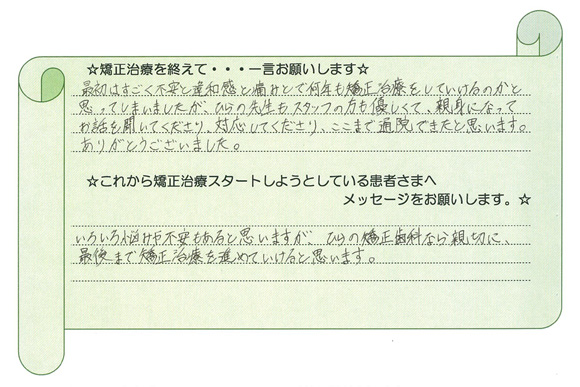 ☆矯正治療を終えて・・・一言お願いします☆
最初はすごく不安と違和感と痛みとで何年も矯正治療をしていけるのかと
思ってしまいましたが、ひらの先生もスタッフの方も優しくて、親身になって
お話を聞いてくださり、対応してくださり、ここまで通院できたと思います。
ありがとうございました。
☆これから矯正治療スタートしようとしている患者さまへ
メッセージをお願いします。☆
いろいろ悩みや不安もあると思いますが、ひらの矯正歯科なら親切に、
最後まで矯正治療を進めていけると思います。